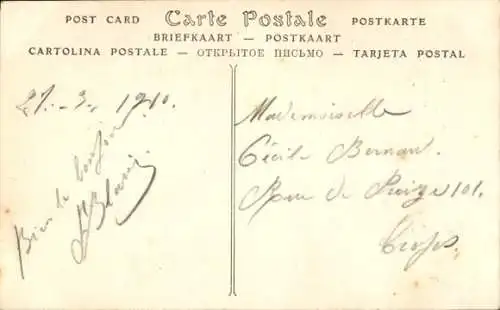 POST CARD Carte Postale POSTKARTE
BRIEFKAART — POSTKAART
CARTOLINA POSTALE — ОТКРЫТОЕ ПИСЬМО — TARJETA POSTAL
27. - 3. 1910.
Bien le bonjour
Mademoiselle
Cécile Bernan.
Rue de 101.